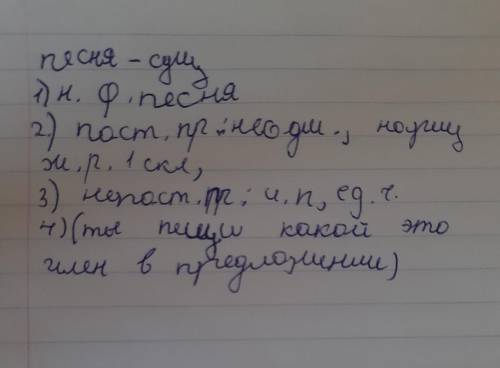 песня - сущ
1) н. ф. песня
2) пост. пр: неодш., нариц
ж. р. 1 скл,
3) непост. пр: и. п, ед. ч.
4) (ты пиши какой это
член в предложении)